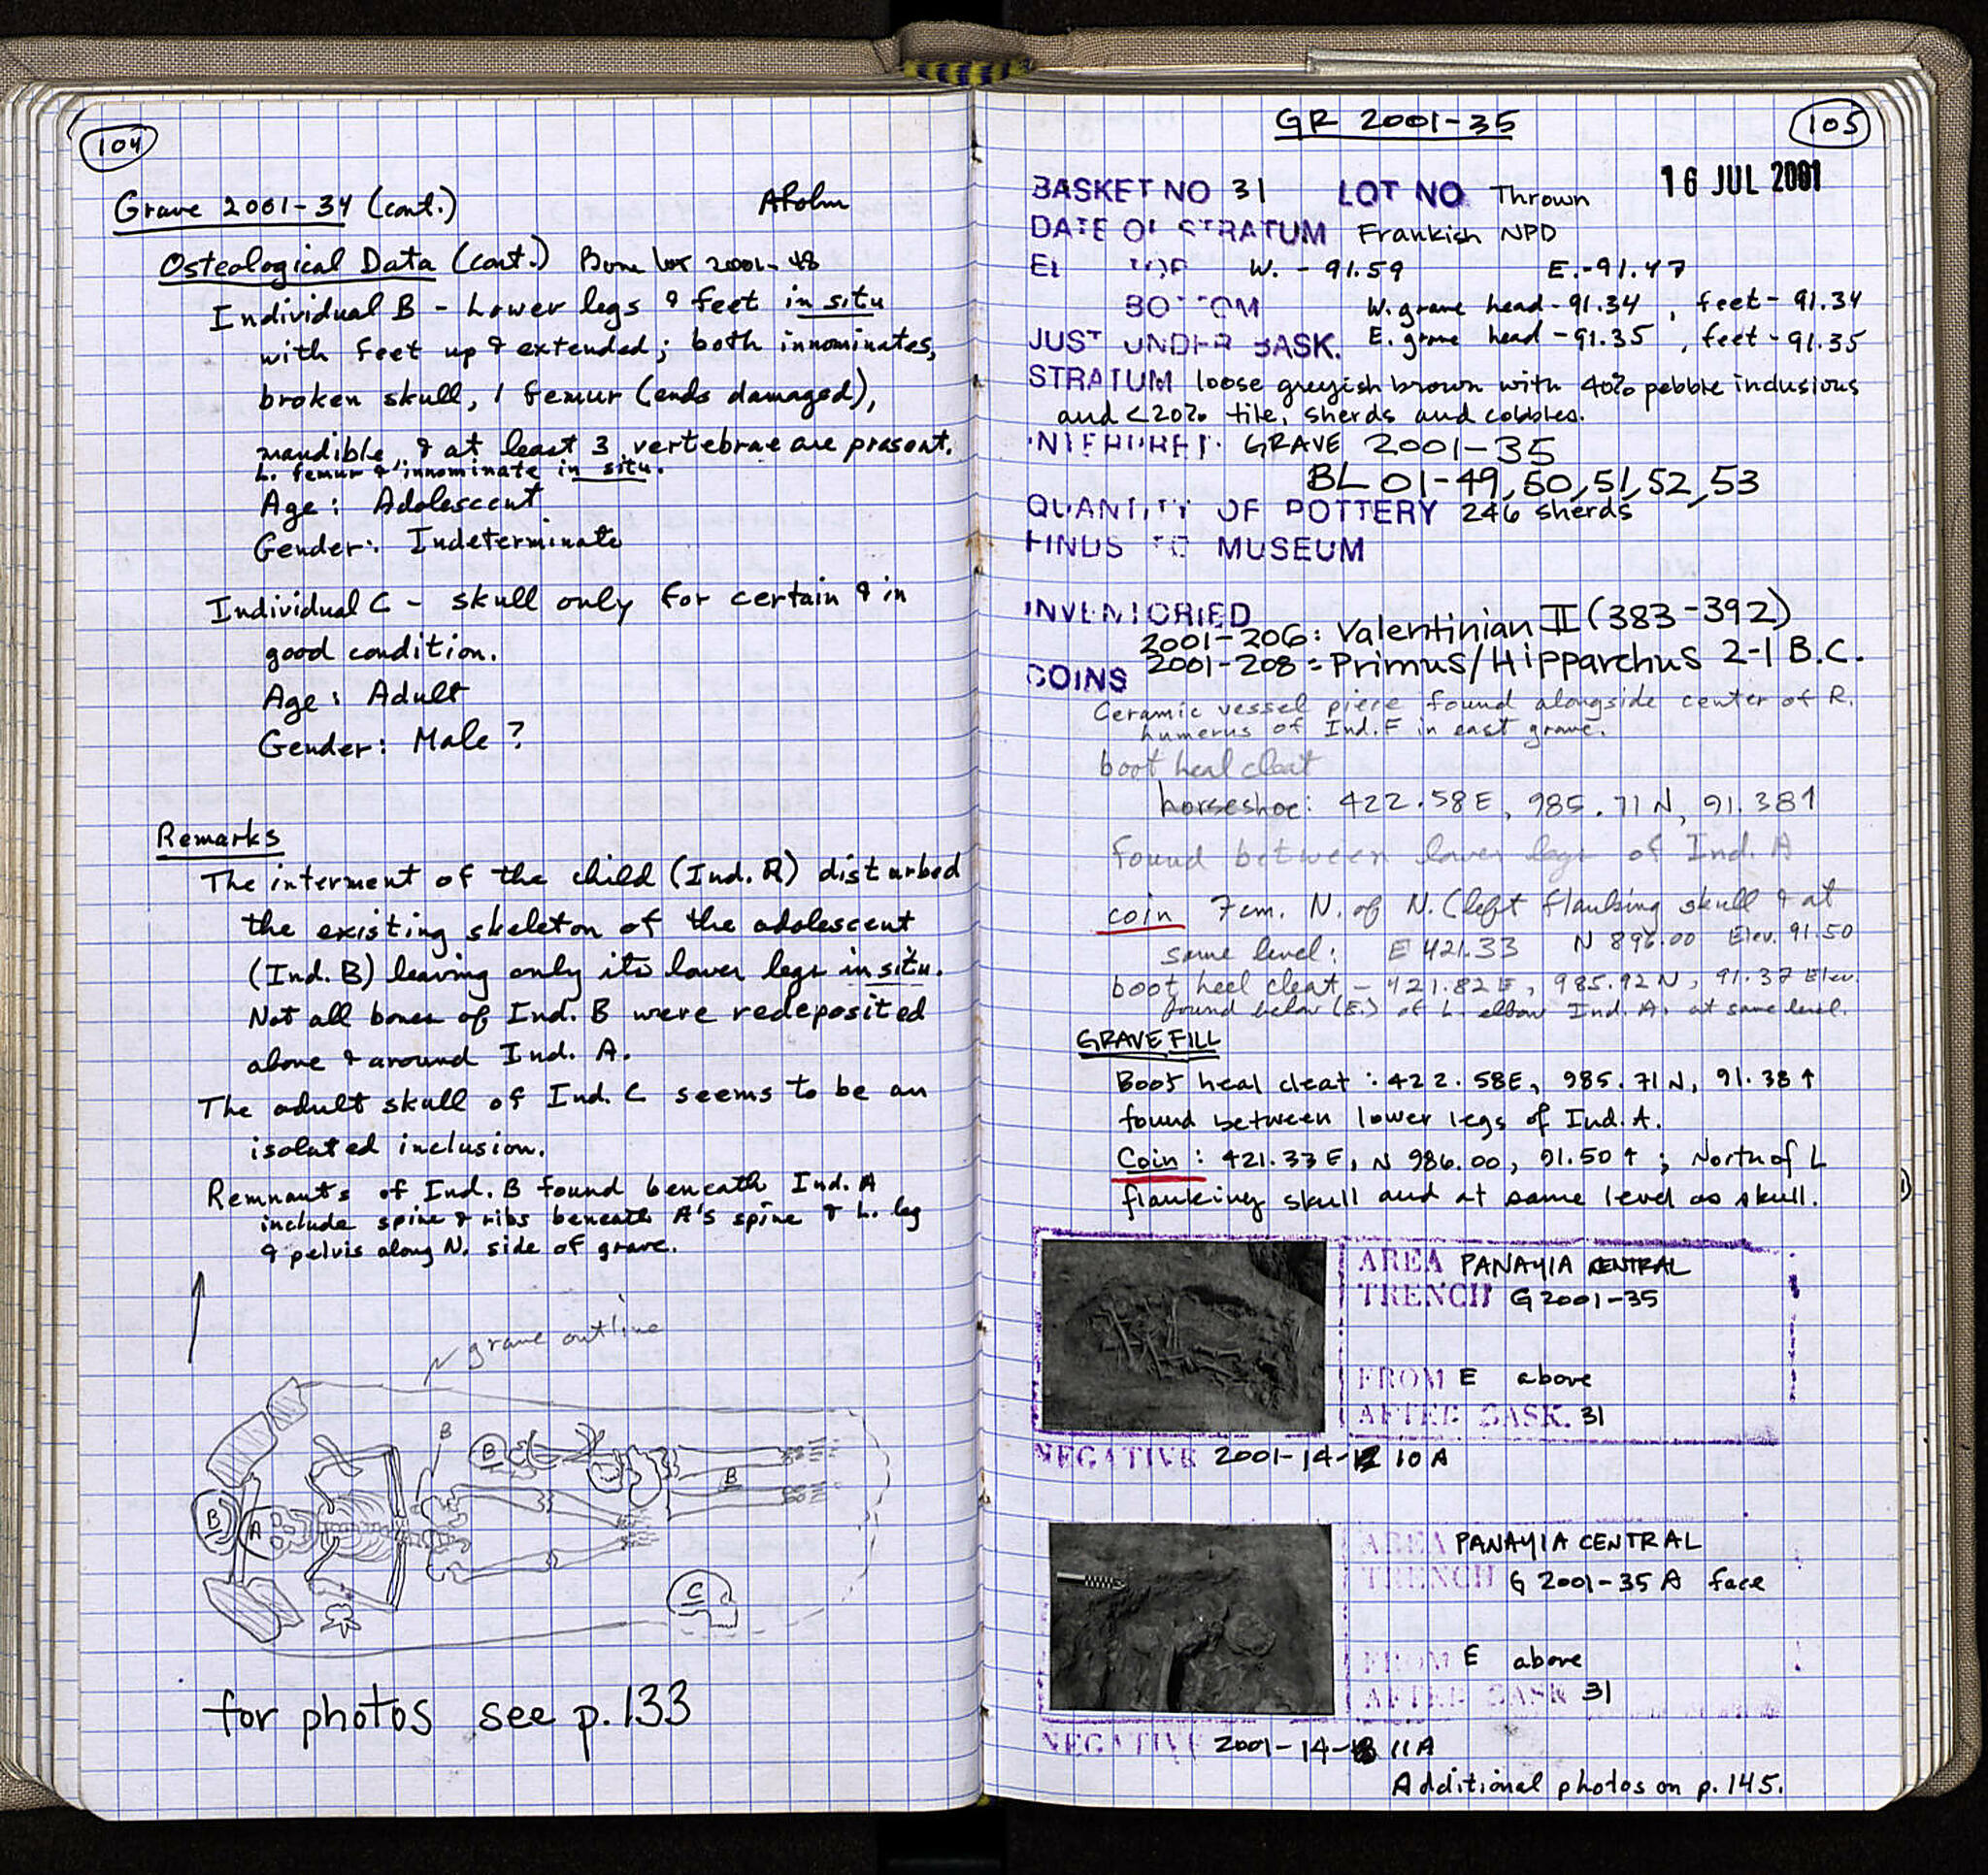 104
Grave 2001-34 (cont.) ARohn
Osteological Data (cont.) Bone lot 2001-48
Individual B - Lower legs & feet in situ
with feet up & extended; both innominates,
broken skull, 1 femur (ends damaged),
mandible, & at least 3 vertebrae are present.
L. femur & innominate in situ.
Age: Adolescent
Gender: Indeterminate
Individual C - skull only for certain & in
good condition.
Age: Adult
Gender: Male?
Remarks
The interment of the child (Ind. A) disturbed
the existing skeleton of the adolescent
(Ind. B) leaving only its lower legs in situ.
Not all bones of Ind. B were redeposited
above & around Ind. A.
The adult skull of Ind. C seems to be an
isolated inclusion.
Remnants of Ind. B found beneath Ind. A
include spine & ribs beneath A's spine & L. leg
& pelvis along N. side of grave.
grave outline
B
B
B
B
A
C
for photos see p.133
GR 2001-35
105
16 JUL 2001
BASKET NO 31 LOT NO. Thrown
DATE OF STRATUM Frankish NPD
EL TOP W. - 91.59 E.-91.47
BOTTOM W. grave head-91.34, feet-91.34
JUST UNDER BASK. E. grave head-91.35, feet-91.35
STRATUM loose greyish brown with 40% pebble inclusions
and <20% tile, sherds and cobbles.
INTERPRET. GRAVE 2001-35
BL 01-49, 50, 51, 52, 53
QUANTITY OF POTTERY 246 sherds
FINDS TO MUSEUM
INVENTORIED
2001-206: Valentinian II (383-392)
2001-208 = Primus/Hipparchus 2-1 B.C.
COINS
Ceramic vessel piece found alongside center of R.
humerus of Ind. F in east grave.
boot heal cleat
horseshoe: 422.58E, 985.71N, 91.38↑
found between lower legs of Ind. A
coin 7cm. N. of N. (left flanking skull & at
same level: E 421.33 N 896.00 Elev. 91.50
boot heel cleat - 421.82E, 985.92N, 91.37 Elev.
found below (E.) of L. elbow Ind. A. at same level.
GRAVE FILL
Boot heal cleat: 422.58E, 985.71N, 91.38↑
found between lower legs of Ind. A.
Coin: 421.33E, N 986.00, 91.50↑; North of L
flanking skull and at same level as skull.
AREA PANAYIA CENTRAL
TRENCH G 2001-35
FROM E above
AFTER BASK. 31
NEGATIVE 2001-14- 10A
AREA PANAYIA CENTRAL
TRENCH G 2001-35 A face
FROM E above
AFTER BASK 31
NEGATIVE 2001-14- 11A
Additional photos on p. 145.